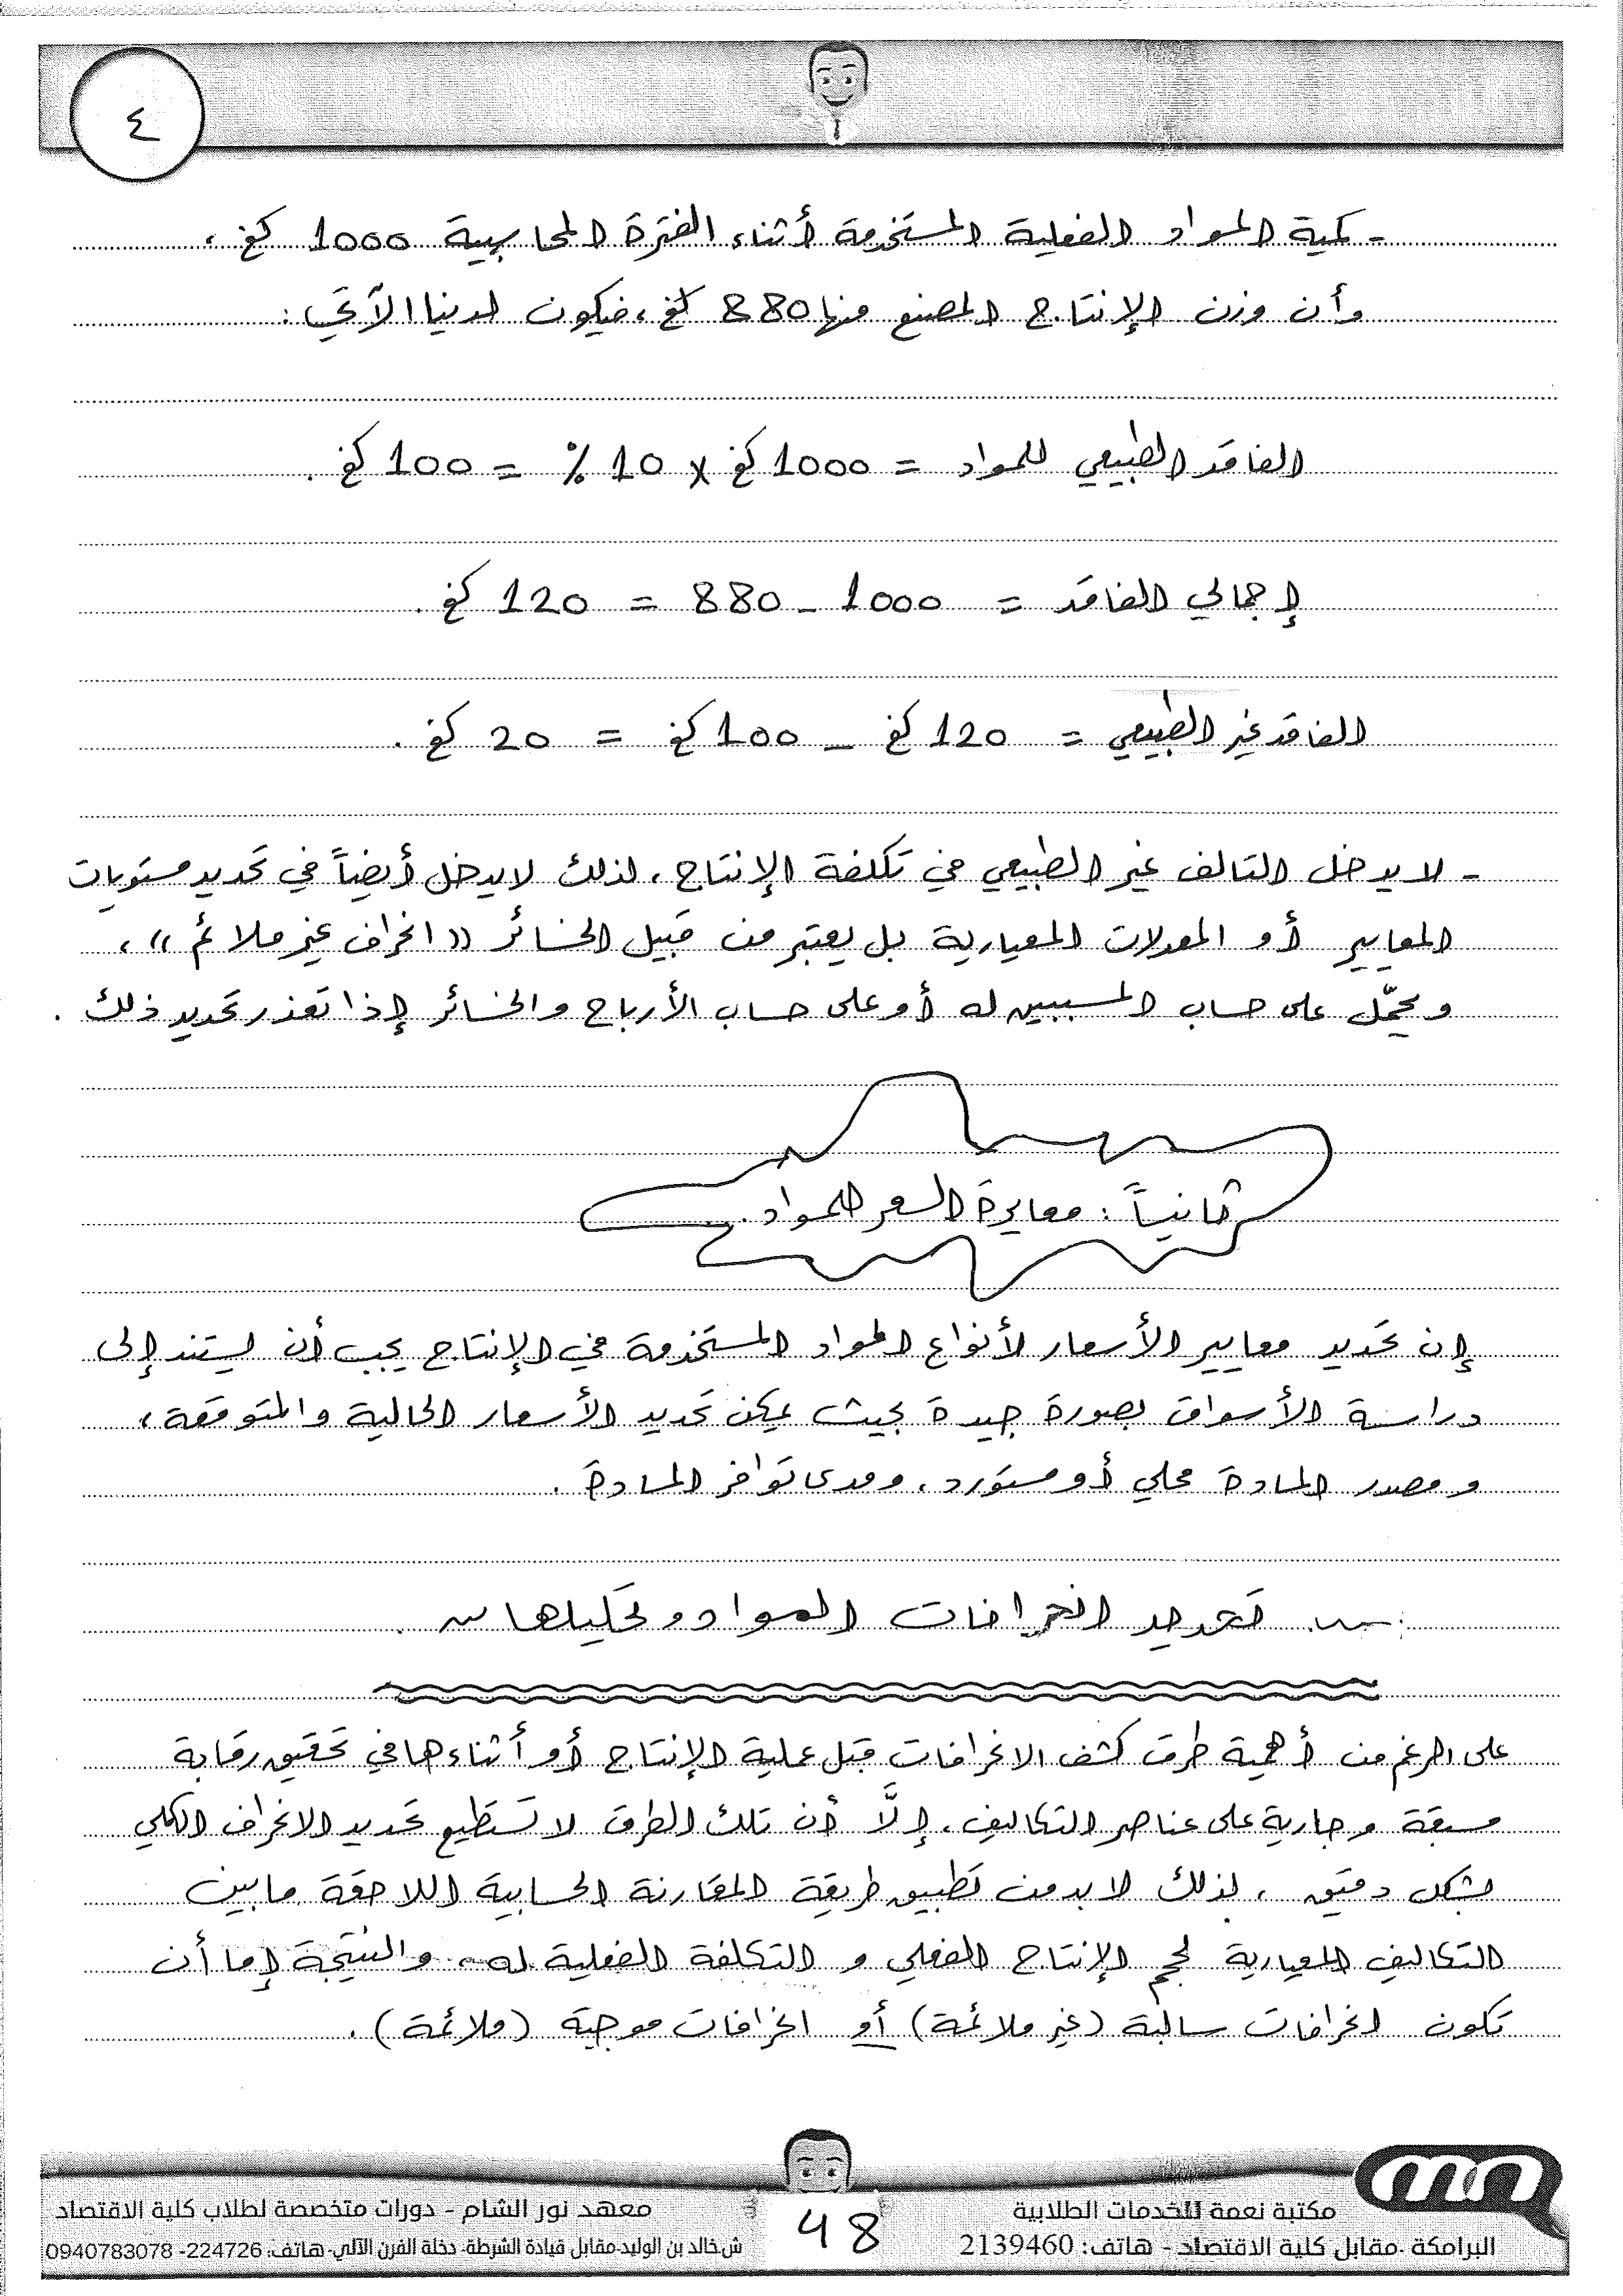 ٤
- كمية المواد الفعلية المستخدمة أثناء الفترة المحاسبية 1000 كغ ،
وأن وزن الإنتاج المصنع منها 880 كغ ، فيكون لدينا الآتي :
الفاقد الطبيعي للمواد = 1000 كغ × 10 % = 100 كغ .
إجمالي الفاقد = 1000 - 880 = 120 كغ .
الفاقد غير الطبيعي = 120 كغ - 100 كغ = 20 كغ .
- لا يدخل التالف غير الطبيعي في تكلفة الإنتاج ، لذلك لا يدخل أيضاً في تحديد مستويات
المعايير أو المعدلات المعيارية بل يعتبر من قبيل الخسائر « انحراف غير ملائم » ،
ويحمّل على حساب المسببين له أو على حساب الأرباح والخسائر إذا تعذر تحديد ذلك .
ثانياً : معايرة السعر للمواد .
إن تحديد معايير الأسعار لأنواع المواد المستخدمة في الإنتاج يجب أن يستند إلى
دراسة الأسواق بصورة جيدة بحيث يمكن تحديد الأسعار الحالية والمتوقعة ،
ومصدر المادة محلي أو مستورد ، ومدى توافر المادة .
تحديد انحرافات المواد وتحليلها
على الرغم من أهمية طرق كشف الانحرافات قبل عملية الإنتاج أو أثناءها في تحقيق رقابة
مسبقة وجارية على عناصر التكاليف ، إلّا أن تلك الطرق لا تستطيع تحديد الانحراف الكلي
بشكل دقيق ، لذلك لا بد من تطبيق طريقة المقارنة الحسابية اللاحقة ما بين
التكاليف المعيارية لحجم الإنتاج الفعلي و التكلفة الفعلية له ، والنتيجة إما أن
تكون انحرافات سالبة (غير ملائمة) أو انحرافات موجبة (ملائمة) .
مكتبة نعمة للخدمات الطلابية
البرامكة -مقابل كلية الاقتصاد - هاتف: 2139460
48
معهد نور الشام - دورات متخصصة لطلاب كلية الاقتصاد
ش.خالد بن الوليد-مقابل قيادة الشرطة- دخلة الفرن الآلي- هاتف: 224726- 0940783078